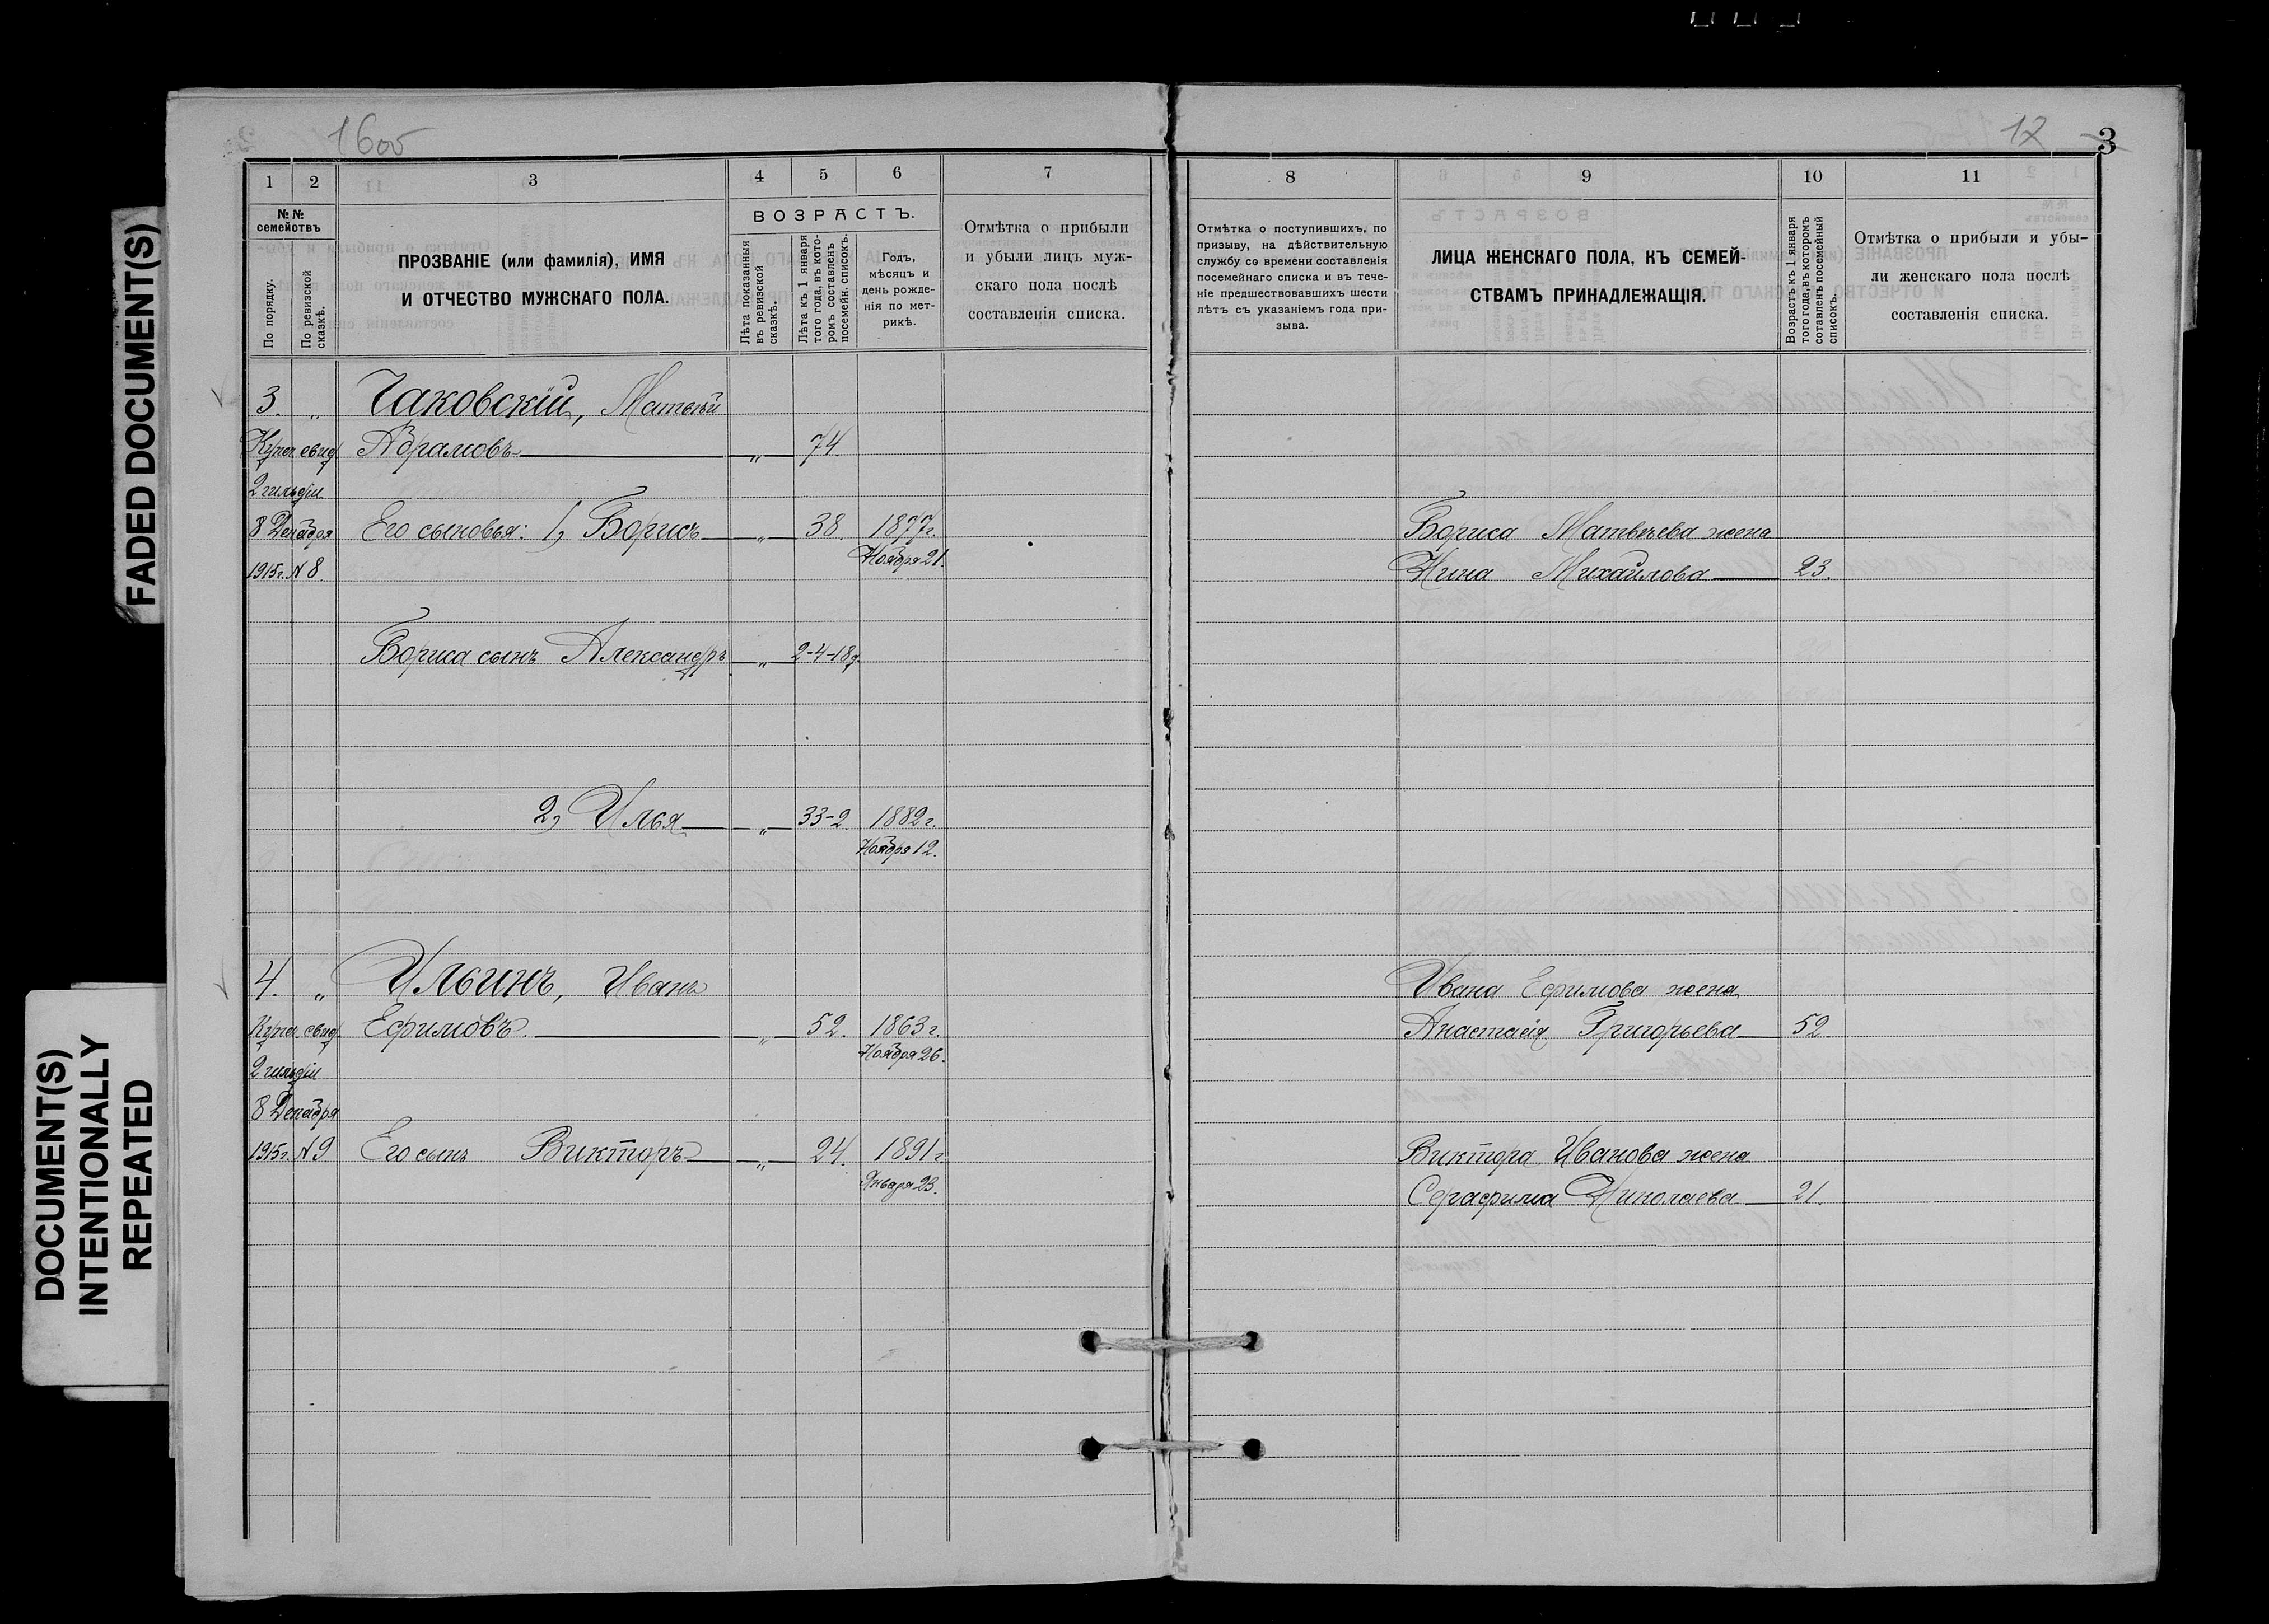 FADED DOCUMENT(S)
DOCUMENT(S)
INTENTIONALLY
REPEATED
12
3
1 2 3 4 5 6 7
№ №
семействъ
По порядку.
По ревизской
сказкѣ.
ПРОЗВАНІЕ (или фамилія), ИМЯ
И ОТЧЕСТВО МУЖСКАГО ПОЛА.
ВОЗРАСТЪ.
Лѣта показанныя
въ ревизской
сказкѣ.
Лѣта къ 1 января
того года, въ кото-
ромъ составленъ
посемейн. списокъ.
Годъ,
мѣсяцъ и
день рожде-
нія по мет-
рикѣ.
Отмѣтка о прибыли
и убыли лицъ муж-
скаго пола послѣ
составленія списка.
3. „ Чаковскій, Матвѣй
Купеч. свид. Абрамовъ „ 74
2 гильдіи
8 Декабря Его сыновья: 1, Борисъ „ 38. 1877г.
1915г. № 8. Ноября 21.
Бориса сынъ Александръ „ 2-4-18д.
2, Илья „ 33-2. 1882г.
Ноября 12.
4. „ Ильинъ, Иванъ
Купеч. свид. Ефимовъ „ 52. 1863г.
2 гильдіи Ноября 26.
8 Декабря
1915г. № 9 Его сынъ Викторъ „ 24. 1891г.
Января 23.
8 9 10 11
Отмѣтка о поступившихъ, по
призыву, на дѣйствительную
службу со времени составленія
посемейнаго списка и въ тече-
ніе предшествовавшихъ шести
лѣтъ съ указаніемъ года при-
зыва.
ЛИЦА ЖЕНСКАГО ПОЛА, КЪ СЕМЕЙ-
СТВАМЪ ПРИНАДЛЕЖАЩІЯ.
Возрастъ къ 1 января
того года, въ которомъ
составленъ посемейный
списокъ.
Отмѣтка о прибыли и убы-
ли женскаго пола послѣ
составленія списка.
Бориса Матвѣева жена
Нина Михайлова 23.
Ивана Ефимова жена
Анастасія Григорьева 52.
Виктора Иванова жена
Серафима Николаева 21.